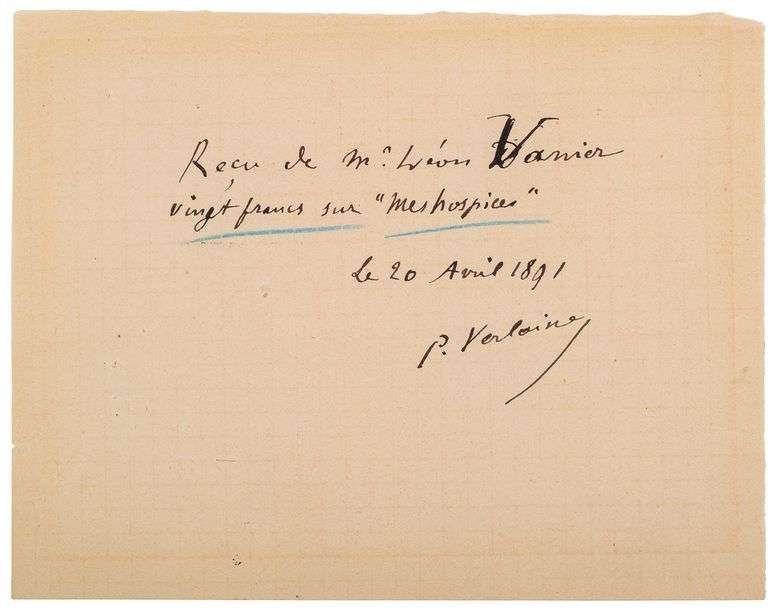 Reçu de Mr. Léon Vanier
vingt francs sur "Mes hospices"
Le 20 Avril 1891
P. Verlaine